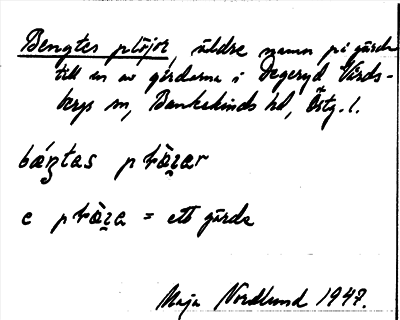 Bengtes plöjor, äldre namn på gärde
till en av gårdarna i Degeryd Vårds-
bergs sn, Bankekinds hd, Östg. l.
e = ett gärde
Maja Nordlund 1947.